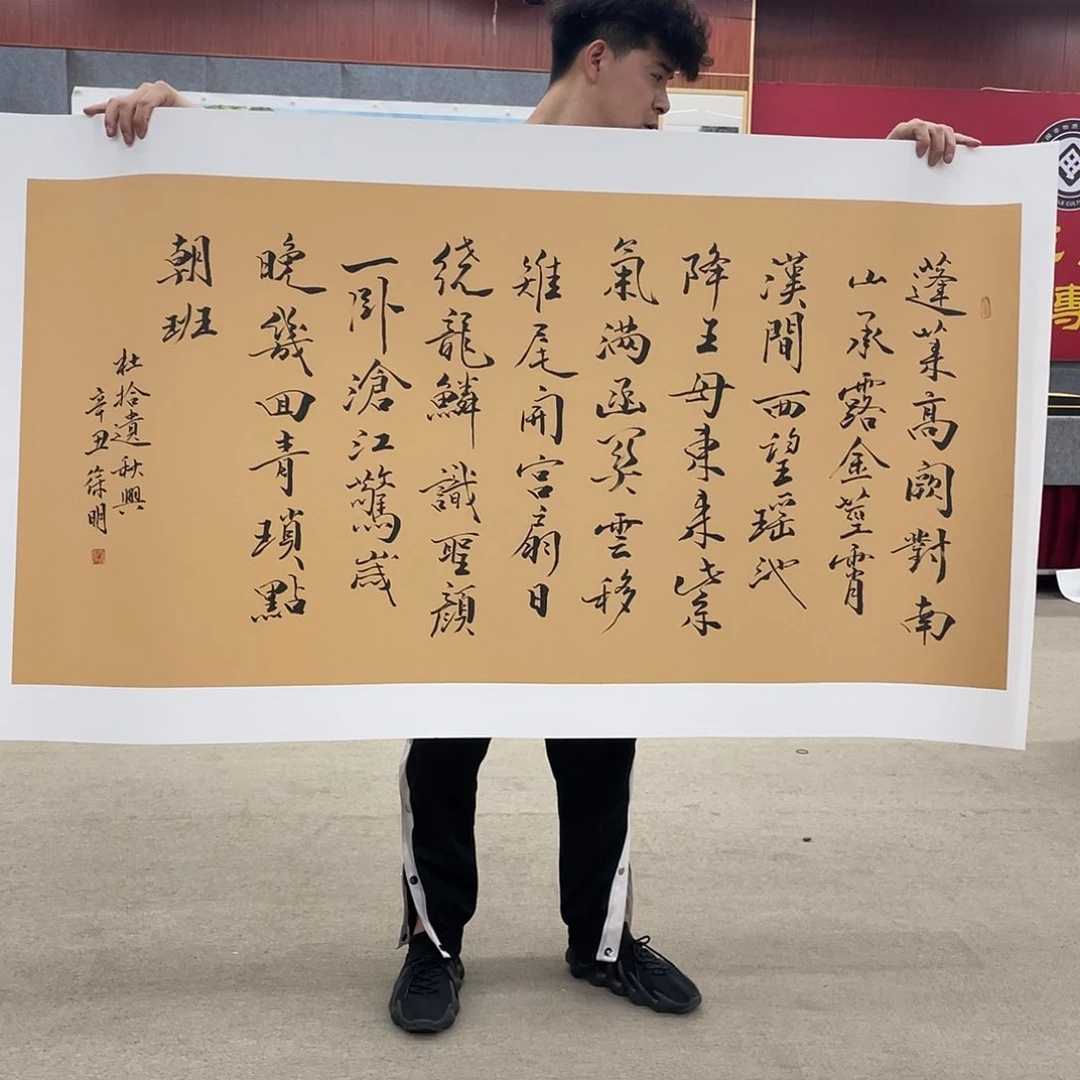 蓬萊高闕對南
山承露金莖霄
漢間西望瑶池
降王母東来紫
氣满函關雲移
雉尾開宫扇日
繞龍鱗識聖顔
一卧滄江驚歲
晚幾回青瑣點
朝班
杜拾遺秋興
辛丑篠明
傳